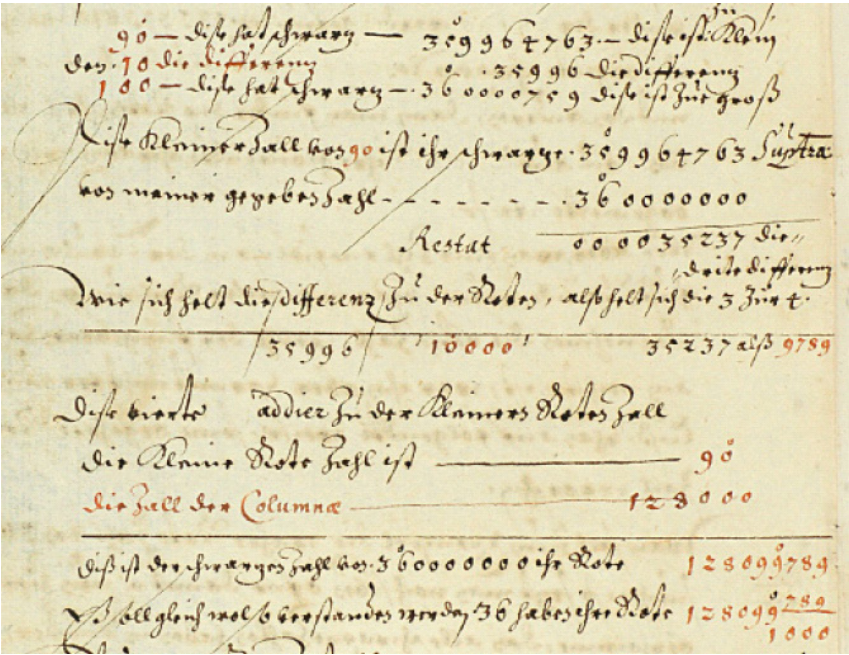 90 — dise hat schwarz — 359964763 — dise ist zu klein
den 10 die differenz 35996 die differenz
100 — dise hat schwarz — 360000759 dise ist zue groß
Dise kleiner Zall von 90 ist ihr schwarze 359964763 Suptra
von meiner gegebnen Zahl - - - - - - - 360000000
Restat 000035237 die
drite differenz
Wie sich helt die differenz zu der Roten, also helt sich die 3 zur 4.
35996 10000 35237 alß 9789
Dise vierte addier zu der kleinern Roten Zall
die kleine Rote Zahl ist — 90
die Zall der Columnæ — 128000
diß ist der schwarzen Zahl von 360000000 ihr Rote 128099789
soll gleich wol so verstanden werden, 36 haben ihre Rote 128099 789
1000